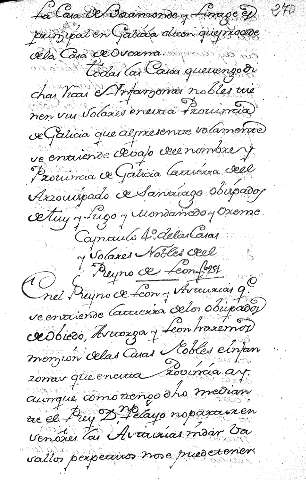 240
La Casa de Baamonde y Linage es
principal en Galicia dicen que viene
de la Casa de
todas las Casas que tengo di
chas Ricas e Infanzonas nobles tie
nen sus solares en esta Provincia
de Galicia que al presente solamente
se entiende debajo de este nombre y
Provincia de Galicia la tierra de el
Arzobispado de Santiago obispados
de tuy y Lugo y Mondoñedo y Orense
Capitulo 4º de las Casas
y Solares Nobles de el
Reyno de Leon
En el Reyno de Leon y Asturias q.e
se entiende la tierra de los obispados
de obiedo, Astorga y Leon haremos
mencion de las Casas Nobles e infan
zonas que en esta Provincia ay.
aunque como tengo dho median
te el Rey D.n Pelayo no
las Asturias ni dar Va
sallos perpetuos no se puede tener